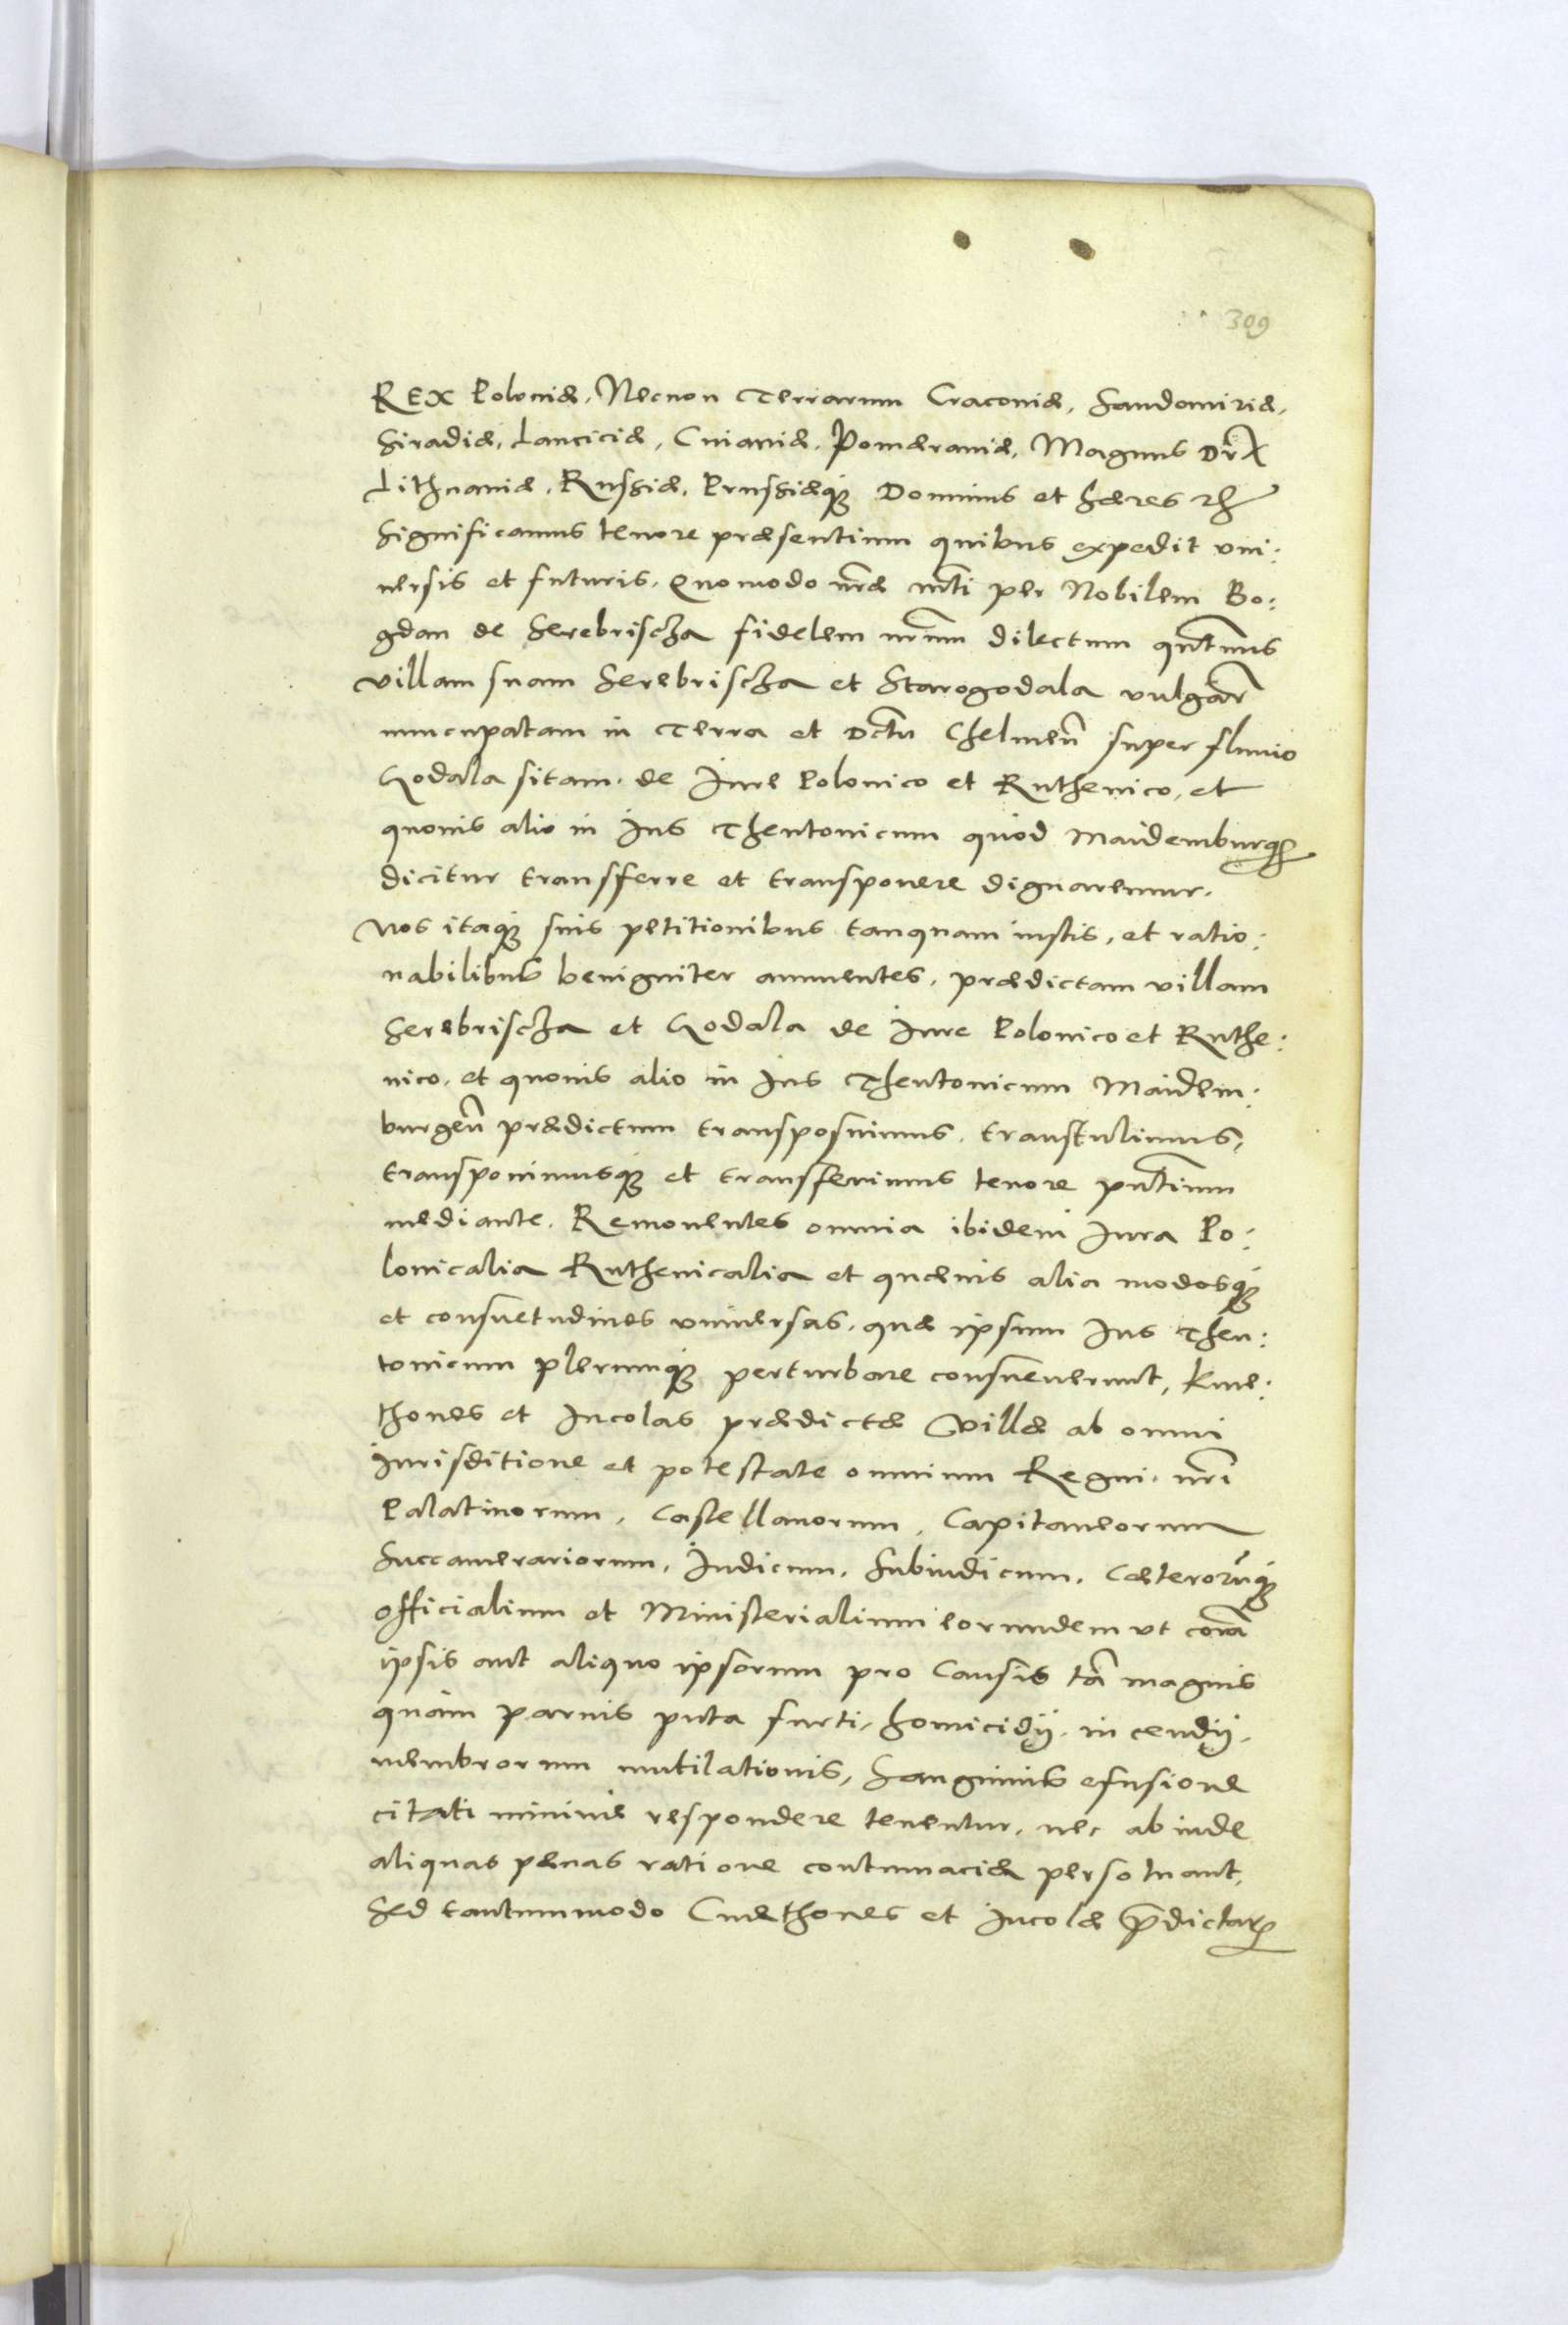 309
REX Poloniæ, Necnon Terrarum Cracoviæ, Sandomiriæ,
Siradiæ, Lanciciæ, Cuiaviæ, Pomæraniæ, Magnus Dux
Lithuaniæ, Russiæ, Prussiæq̃ Dominus et Hæres
Significamus tenore præsentium quibus expedit vni:
uersis et futuris, Quomodo nr̃æ mt̃i per Nobilem Bo:
gdan de Serebrischa fidelem nr̃um dilectum qñtenus
villam suam Serebrischa et Starogodala vulgar̃
nuncupatam in Terra et Dctũ Chelmeñ super fluuio
Godala sitam, de Iure Polonico et Ruthenico, et
quouis alio in Ius Theutonicum quod Maidemburg̃
dicitur transfferre et transponere dignaremur.
Nos itaq̃ suis petitionibus tanquam iustis, et ratio:
nabilibus benigniter annuentes, prædictam villam
Serebrischa et Godala de Iure Polonico et Ruthe:
nico, et quouis alio in Ius Theutonicum Maidem:
burgeñ prædictum transposuimus, transtulimus,
transponimusq̃ et transferimus tenore pñtium
mediante. Remouentes omnia ibidem Iura Po:
lonicalia Ruthenicalia et quæuis alia modosq̃
et consuetudines vniuersas, quæ ipsum Ius Theu:
tonicum plerumq̃ perturbare consueuerunt, Kme:
thones et Incolas prædictæ Villæ ab omni
Iurisditione et potestate omnium Regni nr̃i
Palatinorum, Castellanorum, Capitaneorum
Succamerariorum, Iudicum, Subiudicum, Cæterorũq̃
officialium et Ministerialium eorundem vt corã
ipsis aut aliquo ipsorum pro Causis tã magnis
quàm paruis puta furti, homicidij, incendij,
membrorum mutilationis, Sanguinis efusione
citati minimè respondere tenentur, nec ab inde
aliquas pænas ratione contumaciæ persoluant,
Sed tantummodo Cmethones et Incolæ p̃dictar̃